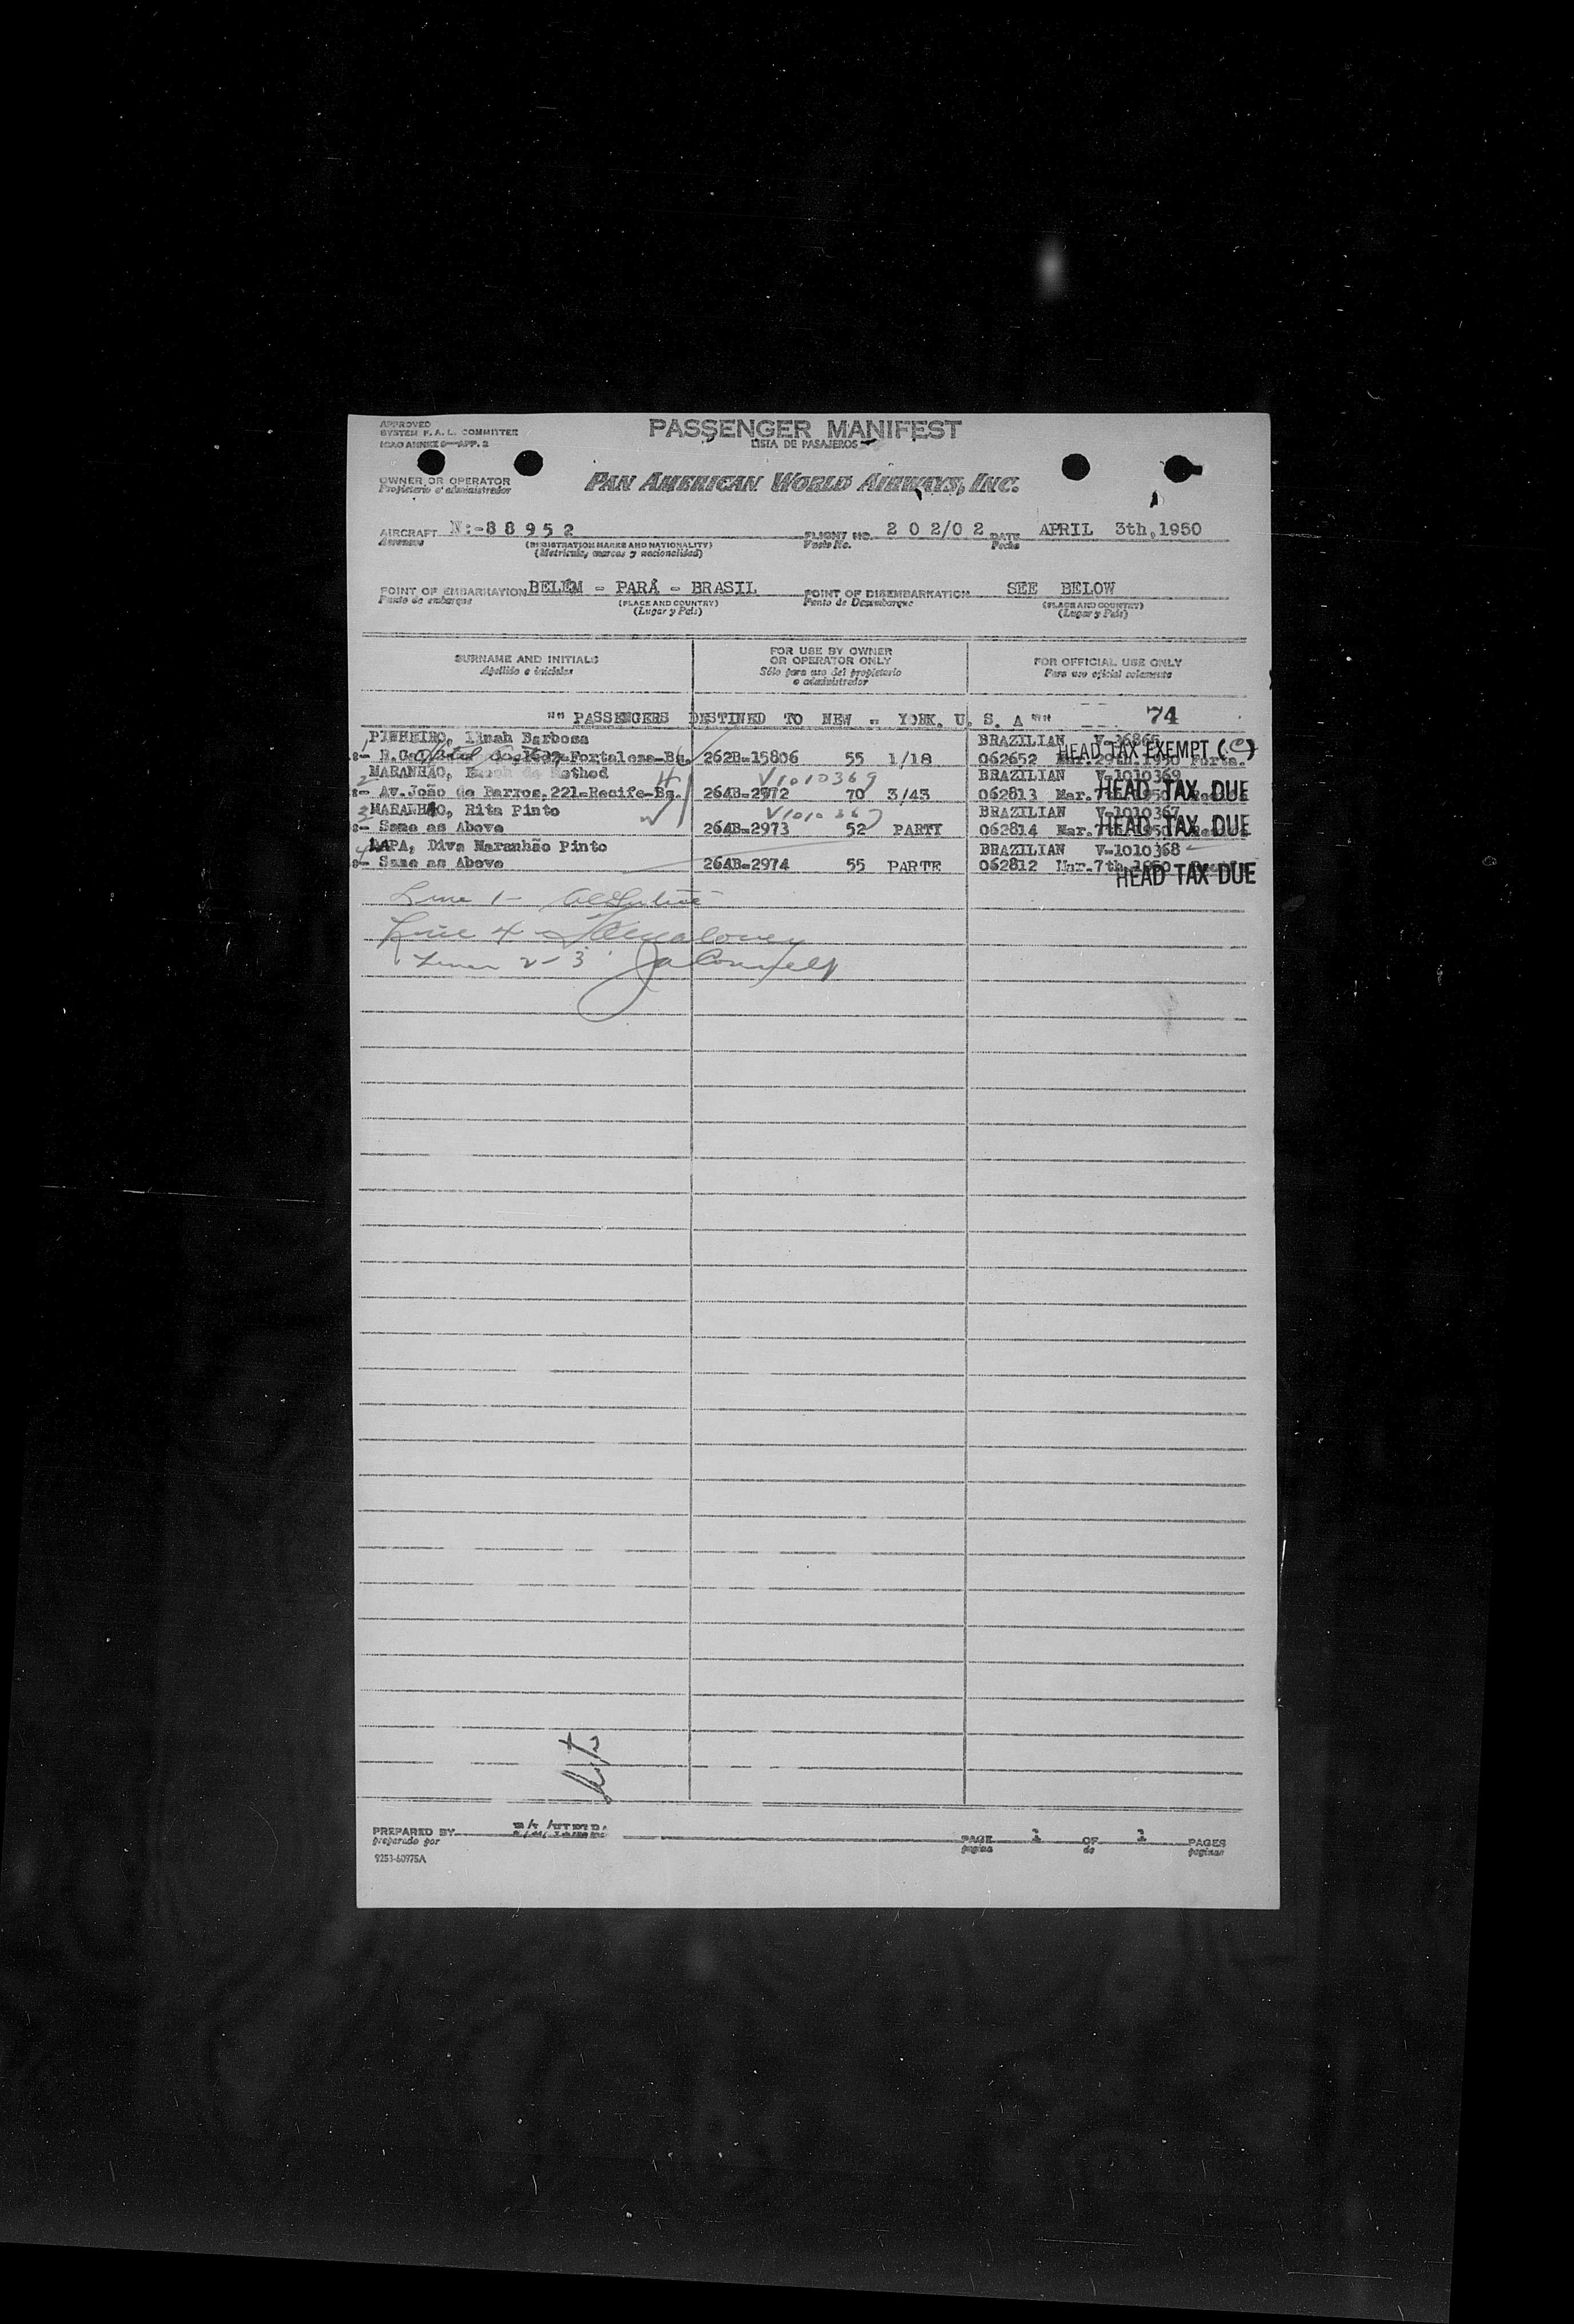 APPROVED
SYSTEM F. A. L. COMMITTEE
ICAO ANNEX 9—APP. 2
PASSENGER MANIFEST
LISTA DE PASAJEROS
OWNER OR OPERATOR
Propietario o administrador
PAN AMERICAN WORLD AIRWAYS, INC.
AIRCRAFT N:-8 8 9 5 2 FLIGHT NO. 2 0 2/0 2 DATE APRIL 3th,1950
Aeronave (REGISTRATION MARKS AND NATIONALITY) Vuelo No. Fecha
(Matricula, marcas y nacionalidad)
POINT OF EMBARKATION BELÉM - PARÁ - BRASIL POINT OF DISEMBARKATION SEE BELOW
Punto de embarque (PLACE AND COUNTRY) Punto de Desembarque (PLACE AND COUNTRY)
(Lugar y Pais) (Lugar y Pais)
SURNAME AND INITIALS FOR USE BY OWNER OR OPERATOR ONLY FOR OFFICIAL USE ONLY
Apellido e iniciales Sólo para uso del propietario o administrador Para uso oficial solamente
"" PASSENGERS DESTINED TO NEW - YORK. U. S. A "" 74
1 PINHEIRO, Barbosa BRAZILIAN
Fortaleza-Bz. 262B-15806 55 1/18 062652 Mar.29th.1950 HEAD TAX EXEMPT (C)
2 MARANHÃO, V1010369 BRAZILIAN V-1010369
:- Av.João de Barros,221-Recife-Bz. 264B-2972 70 3/43 062813 Mar. HEAD TAX DUE
3 MARANHÃO, Rita Pinto V1010367 BRAZILIAN V-1010367
:- Same as Above 264B-2973 52 PARTY 062814 Mar. HEAD TAX DUE
4 LAPA, Diva Maranhão Pinto BRAZILIAN V-1010368
:- Same as Above 264B-2974 55 PARTE 062812 Mar.7th.1950 HEAD TAX DUE
Line 1 -
Line 4 -
Lines 2-3
PREPARED BY PAGE 1 OF 1 PAGES
preparado por pagina de paginas
9253-60975A